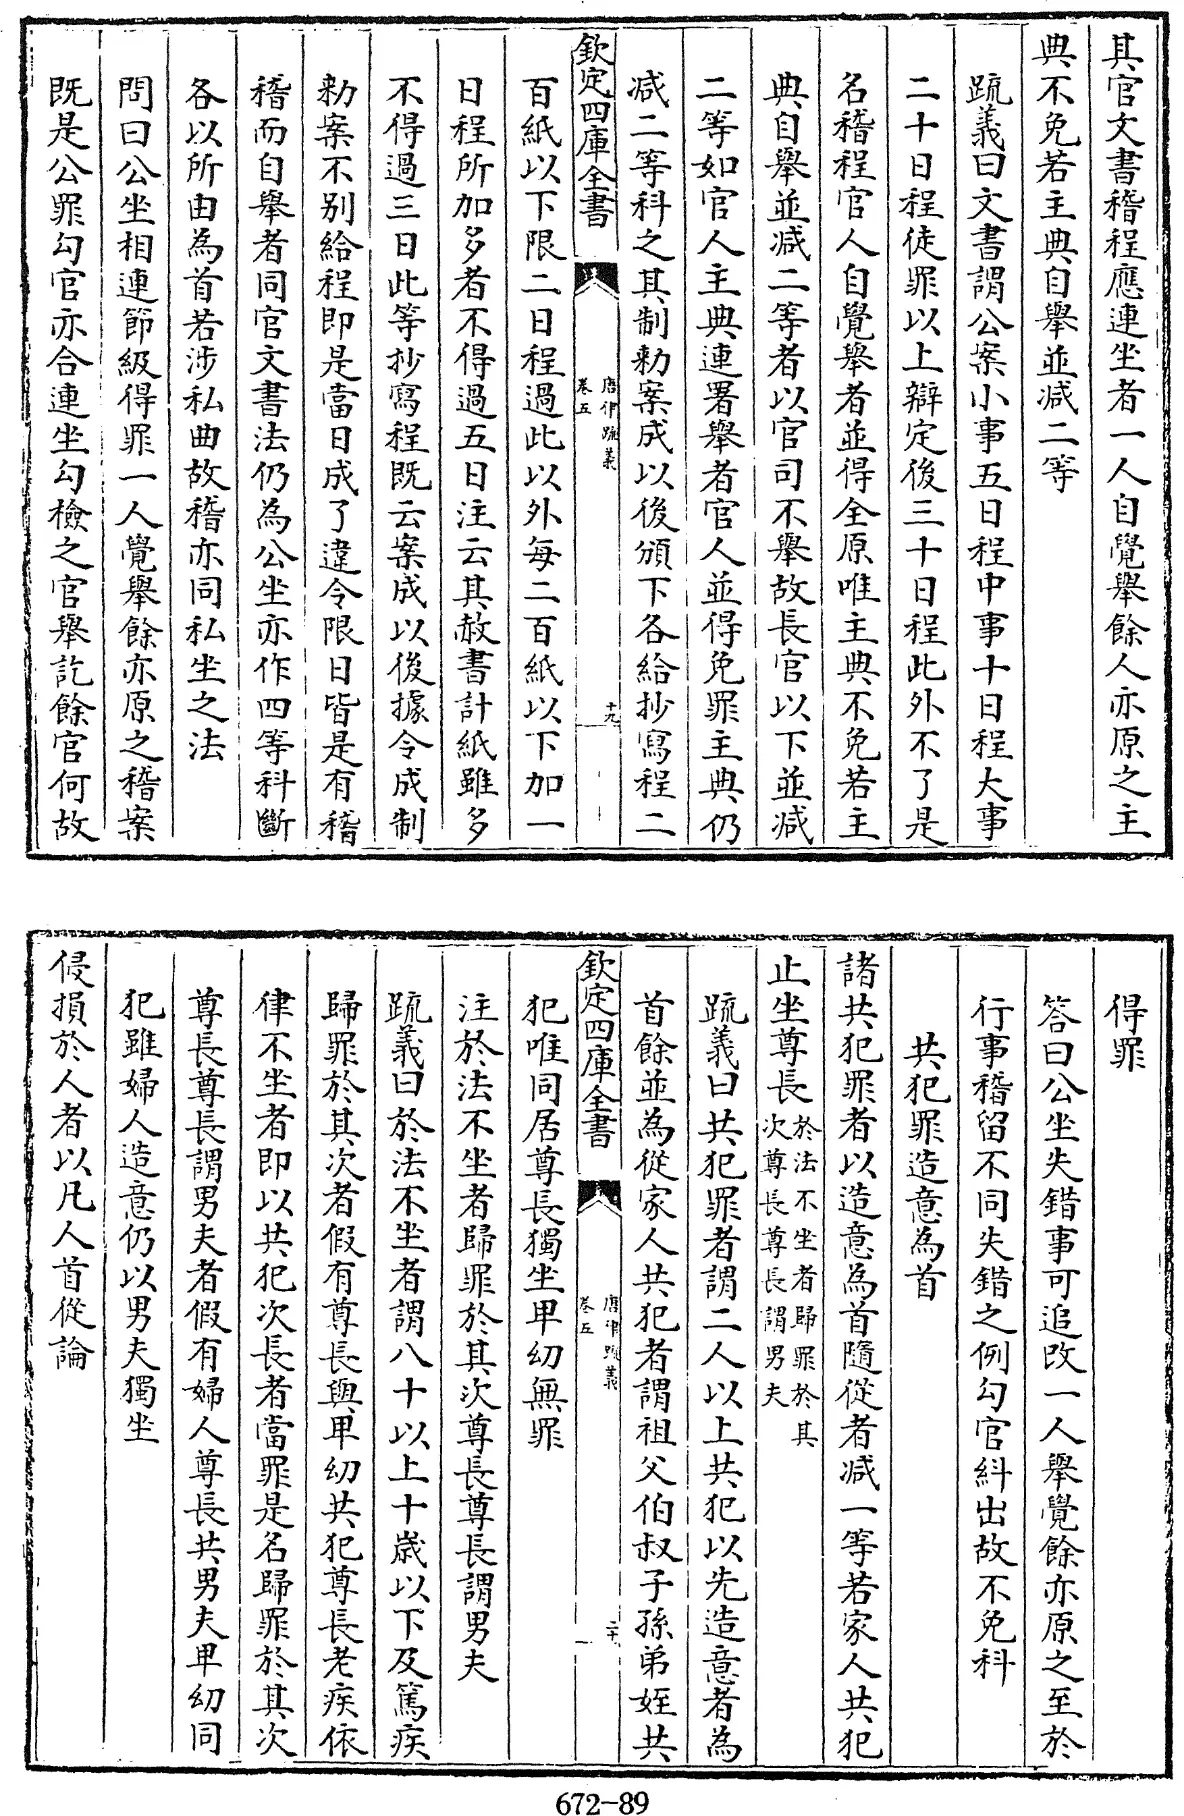 其官文書稽程應連坐者一人自覺舉餘人亦原之主
典不免若主典自舉並减二等
疏義曰文書謂公案小事五日程中事十日程大事
二十日程徒罪以上辯定後三十日程此外不了是
名稽程官人自覺舉者並得全原唯主典不免若主
典自舉並减二等者以官司不舉故長官以下並减
二等如官人主典連署舉者官人並得免罪主典仍
减二等科之其制勅案成以後頒下各給抄寫程二
欽定四庫全書
唐律疏義
卷五
十九
百紙以下限二日程過此以外每二百紙以下加一
日程所加多者不得過五日注云其赦書計紙雖多
不得過三日此等抄寫程既云案成以後據令成制
勅案不別給程即是當日成了違令限日皆是有稽
稽而自舉者同官文書法仍為公坐亦作四等科斷
各以所由為首若涉私曲故稽亦同私坐之法
問曰公坐相連節級得罪一人覺舉餘亦原之稽案
既是公罪勾官亦合連坐勾檢之官舉訖餘官何故
得罪
答曰公坐失錯事可追改一人舉覺餘亦原之至於
行事稽留不同失錯之例勾官糾出故不免科
共犯罪造意為首
諸共犯罪者以造意為首隨從者减一等若家人共犯
止坐尊長於法不坐者歸罪於其
次尊長尊長謂男夫
疏義曰共犯罪者謂二人以上共犯以先造意者為
首餘並為從家人共犯者謂祖父伯叔子孫弟姪共
欽定四庫全書
唐律疏義
卷五
二十
犯唯同居尊長獨坐卑幼無罪
注於法不坐者歸罪於其次尊長尊長謂男夫
疏義曰於法不坐者謂八十以上十歲以下及篤疾
歸罪於其次者假有尊長與卑幼共犯尊長老疾依
律不坐者即以共犯次長者當罪是名歸罪於其次
尊長尊長謂男夫者假有婦人尊長共男夫卑幼同
犯雖婦人造意仍以男夫獨坐
侵損於人者以凡人首從論
672-89